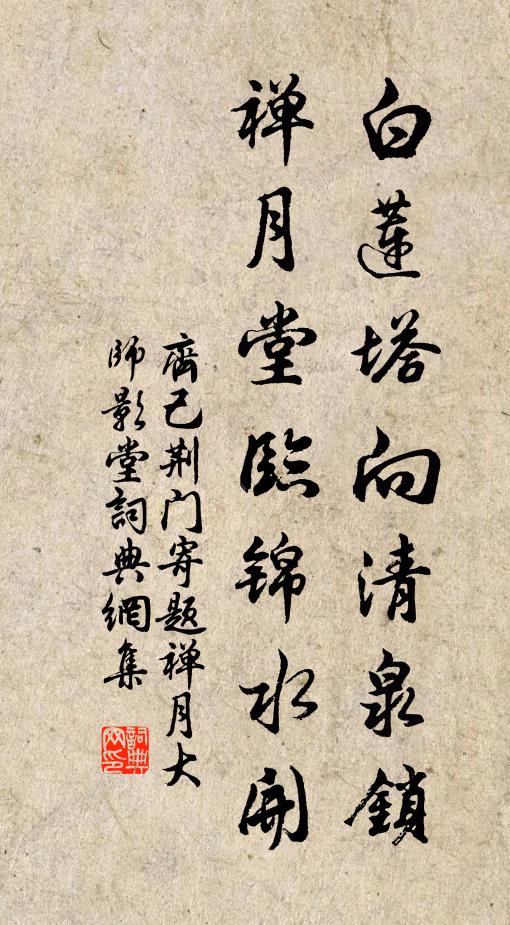 白蓮塔向清泉鎖
禅月堂臨錦水開
齊己荆门寄题禅月大
师影堂詞典網集
詞典
网印